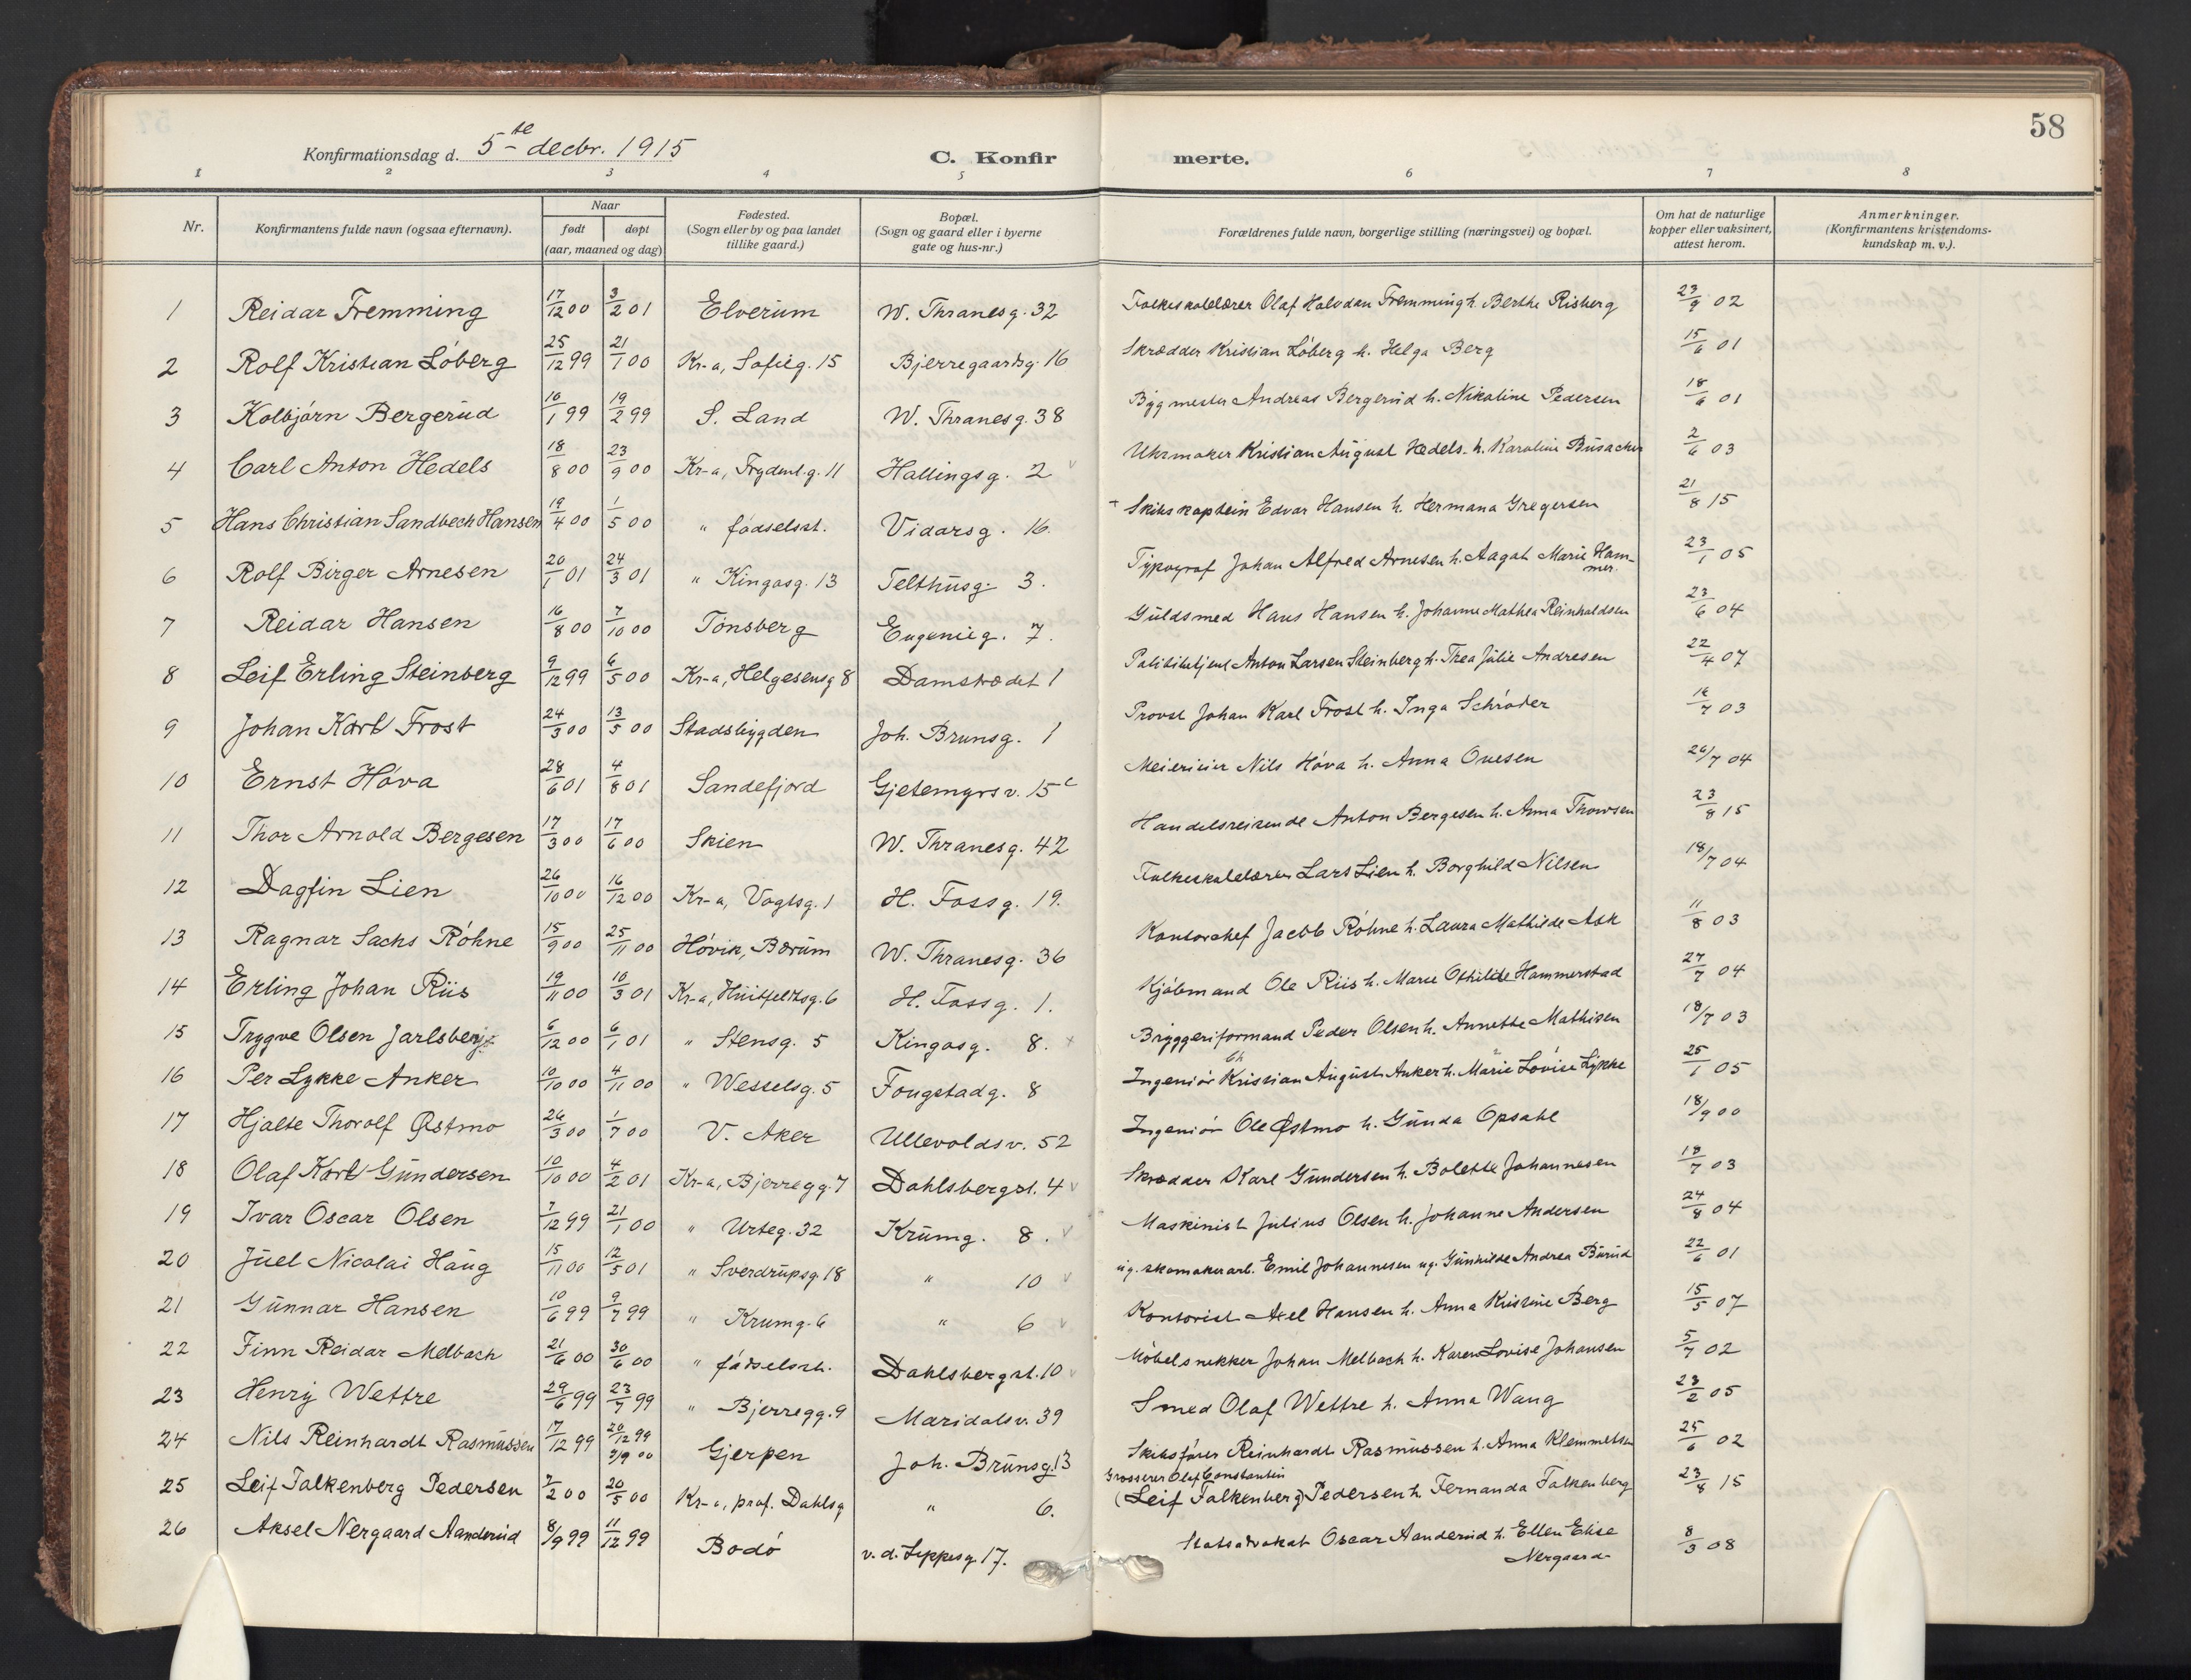 58
Konfirmationsdag d. 5te decbr. 1915
C. Konfirmerte.
1 2 3 4 5 6 7 8
Nr. Konfirmantens fulde navn (ogsaa efternavn). Naar født døpt (aar, maaned og dag) Fødested. (Sogn eller by og paa landet tillike gaard.) Bopæl. (Sogn og gaard eller i byerne gate og hus-nr.) Forældrenes fulde navn, borgerlige stilling (næringsvei) og bopæl. Om hat de naturlige kopper eller vaksinert, attest herom. Anmerkninger. (Konfirmantens kristendomskundskap m. v.).
1 Reidar Fremming 17/12 00 3/2 01 Elverum W. Thranesg. 32 Folkeskolelærer Olaf Halvdan Fremming h. Berthe Risberg 23/9 02
2 Rolf Kristian Løberg 25/12 99 21/1 00 Kr-a, Sofieg. 15 Bjerregaardsg. 16 Skrædder Kristian Løberg h. Helga Berg 15/6 01
3 Kolbjørn Bergerud 10/1 99 19/2 99 S. Land W. Thranesg. 38 Bygmester Andreas Bergerud h. Nikoline Pedersen 18/6 01
4 Carl Anton Hedels 18/8 00 23/9 00 Kr-a, Trydenl.g. 11 Hallingsg. 2 Uhrmaker Kristian August Hedels h. Karoline Busacker 2/6 03
5 Hans Christian Sandbech Hansen 19/4 00 1/5 00 " fødselsst. Vidarsg. 16. + Skibskaptein Edvar Hansen h. Hermana Gregersen 21/8 15
6 Rolf Birger Arnesen 20/1 01 24/3 01 " Kingosg. 13 Telthusg. 3. Typograf Johan Alfred Arnesen h. Aagat Marie Hammer. 23/1 05
7 Reidar Hansen 16/8 00 7/10 00 Tønsberg Eugenieg. 7. Guldsmed Hans Hansen h. Johanne Mathea Reinholdsen 23/6 04
8 Leif Erling Steinberg 9/12 99 6/5 00 Kr-a, Helgesensg 8 Damstrædet 1 Politibetjent Anton Larsen Steinberg h. Thea Julie Andresen 22/4 07
9 Johan Karl Frost 24/3 00 13/5 00 Stadsbygden Joh. Brunsg. 1 Provst Johan Karl Frost h. Inga Schrøder 16/7 03
10 Ernst Høva 28/6 01 4/8 01 Sandefjord Gjetemyrsv. 15c Meierieier Nils Høva h. Anna Ouesen 26/7 04
11 Thor Arnold Bergesen 17/3 00 17/6 00 Skien W. Thranesg. 42 Handelsreisende Anton Bergesen h. Anna Thowsen 23/8 15
12 Dagfin Lien 26/10 00 16/12 00 Kr-a, Vogtsg. 1 H. Fossg. 19. Folkeskolelærer Lars Lien h. Borghild Nilsen 18/7 04
13 Ragnar Sachs Røhne 15/9 00 25/11 00 Høvik, Bærum W. Thranesg. 36 Kontorchef Jacob Røhne h. Laura Mathilde Ask 11/8 03
14 Erling Johan Riis 19/11 00 10/3 01 Kr-a, Huitfeldtsg. 6 H. Fossg. 1. Kjøbmand Ole Riis h. Marie Othilide Hammerstad 27/7 04
15 Trygve Olsen Jarlsberg 6/12 00 6/1 01 " Stensg. 5 Kingosg. 8. Bryggeriformand Peder Olsen h. Annette Mathisen 18/7 03
16 Per Lykke Anker 10/10 00 4/11 00 " Wesselsg. 5 Fougstadg. 8 Ingeniør Ch Kristian August Anker h. Marie Lovise Lykke 25/1 05
17 Hjalte Thorolf Østmo 26/3 00 1/7 00 V. Aker Ullevoldsv. 52 Ingeniør Ole Østmo h. Gunda Opsahl 18/9 00
18 Olaf Karl Gundersen 10/10 00 4/2 01 Kr-a, Bjerregg. 7 Dahlsbergst. 4 Skrædder Karl Gundersen h. Bolette Johannesen 18/7 03
19 Ivar Oscar Olsen 7/12 99 21/1 00 " Urteg. 32 Krumg. 8. Maskinist Julius Olsen h. Johanne Andersen 24/8 04
20 Juel Nicolai Haug 15/11 00 12/5 01 " Sverdrupsg. 18 " 10 ug. skomakerarb. Emil Johannesen ug. Gunhilde Andrea Burud 22/6 01
21 Gunnar Hansen 10/6 99 9/7 99 " Krumg. 6 " 6 Kontorist Axel Hansen h. Anna Kristine Berg 15/5 07
22 Finn Reidar Melbach 21/6 00 30/6 00 " fødselsst. Dahlsbergst. 10 Møbelsnekker Johan Melbach h. Karen Lovise Johansen 5/7 02
23 Henry Wettre 29/6 99 23/7 99 " Bjerregg. 9 Maridalsv. 39 Smed Olaf Wettre h. Anna Wang 23/2 05
24 Nils Reinhardt Rasmussen 17/12 99 20/12 99 7/9 00 Gjerpen Joh. Brunsg. 13 Skibsfører Reinhardt Rasmussen h. Anna Klemmetsen 25/6 02
25 Leif Falkenberg Pedersen 7/2 00 20/5 00 Kr-a, prof. Dahlsg " 6. Grosserer Olaf Constantin (Leif Falkenberg) Pedersen h. Fernanda Falkenberg 23/8 15
26 Aksel Nergaard Aanderud 8/9 99 11/12 99 Bodø v. d. Lippesg. 17. Statsadvokat Oscar Aanderud h. Ellen Elise Nergaard 8/3 08